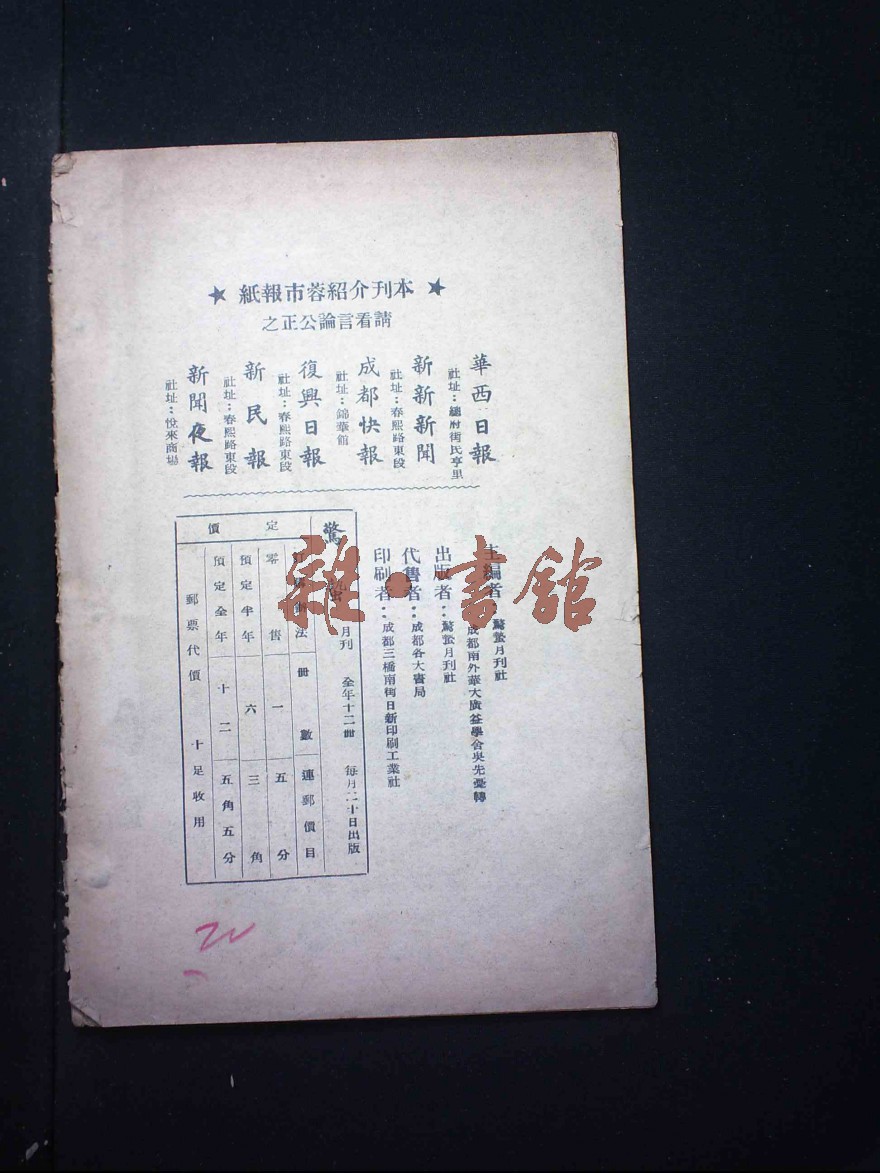 ★ 本刊介紹蓉市報紙 ★
請看言論公正之
華西日報
社址：總府街民亨里
新新新聞
社址：春熙路東段
成都快報
社址：錦華館
復興日報
社址：春熙路東段
新民報
社址：春熙路東段
新聞夜報
社址：悅來商場
主編者：驚蟄月刊社
成都南外華大廣益學舍吳先憂轉
出版者：驚蟄月刊社
代售者：成都各大書局
印刷者：成都三橋南街日新印刷工業社
驚蟄 月刊 全年十二冊 每月二十日出版
定價
法 冊數 連郵價目
零售 一 五分
預定半年 六 三角
預定全年 十二 五角五分
郵票代價 十足收用
雜·書館